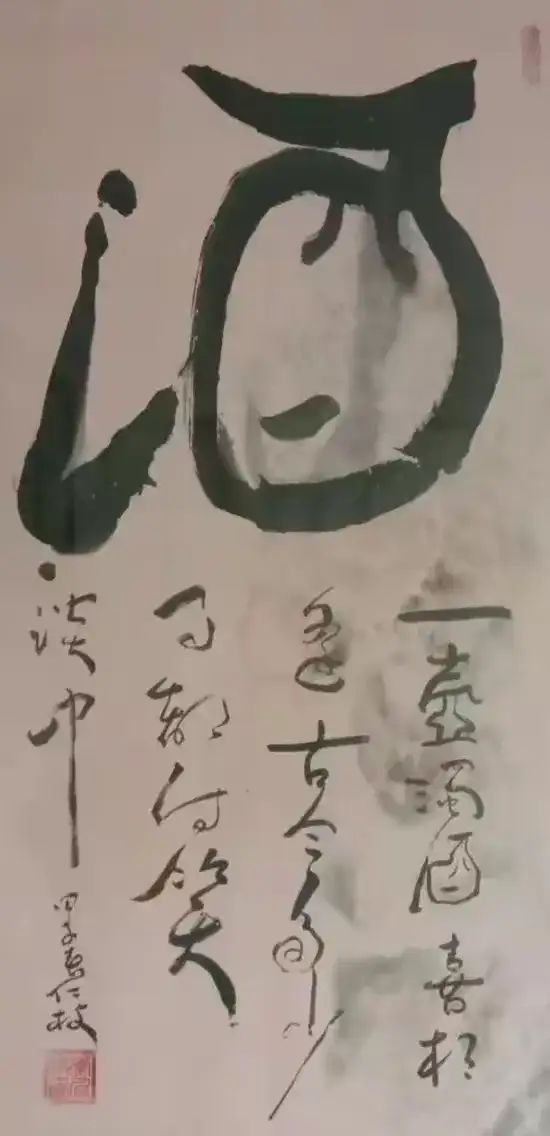 酒
一壺濁酒喜相
逢古今多少
事都付笑
談中